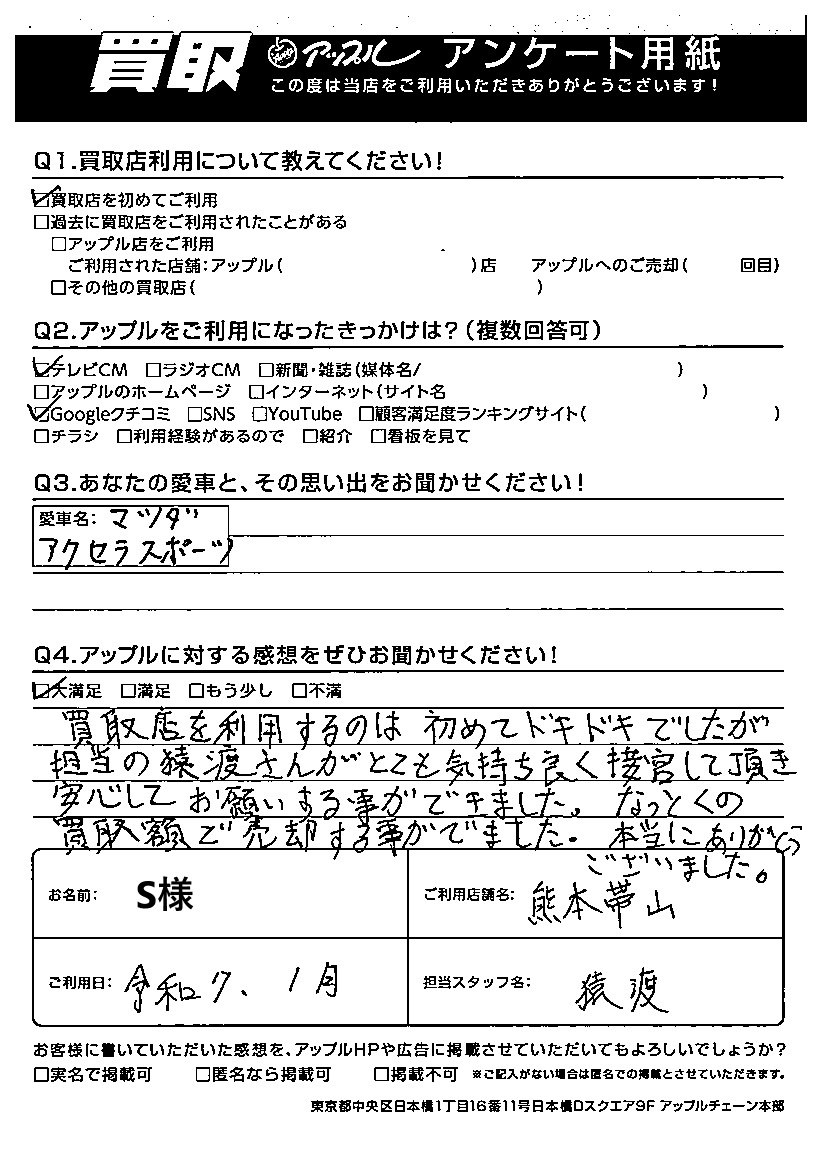 買取 アップル アンケート用紙
この度は当店をご利用いただきありがとうございます！
Q1.買取店利用について教えてください！
☑買取店を初めてご利用
□過去に買取店をご利用されたことがある
□アップル店をご利用
ご利用された店舗：アップル（ ）店 アップルへのご売却（ 回目）
□その他の買取店（ ）
Q2.アップルをご利用になったきっかけは？（複数回答可）
☑テレビCM □ラジオCM □新聞・雑誌（媒体名/ ）
□アップルのホームページ □インターネット（サイト名 ）
☑Googleクチコミ □SNS □YouTube □顧客満足度ランキングサイト（ ）
□チラシ □利用経験があるので □紹介 □看板を見て
Q3.あなたの愛車と、その思い出をお聞かせください！
愛車名： マツダ
アクセラスポーツ
Q4.アップルに対する感想をぜひお聞かせください！
☑大満足 □満足 □もう少し □不満
買取店を利用するのは 初めてドキドキでしたが
担当の猿渡さんがとても気持ち良く接官して頂き
安心して お願いする事ができました。 なっとくの
買取額で売却する事ができました。 本当にありがとう
ございました。
お名前： S様
ご利用店舗名： 熊本帯山
ご利用日： 令和7、1月
担当スタッフ名： 猿渡
お客様に書いていただいた感想を、アップルHPや広告に掲載させていただいてもよろしいでしょうか？
□実名で掲載可 □匿名なら掲載可 □掲載不可 ※ご記入がない場合は匿名での掲載とさせていただきます。
東京都中央区日本橋1丁目16番11号日本橋Dスクエア9F アップルチェーン本部